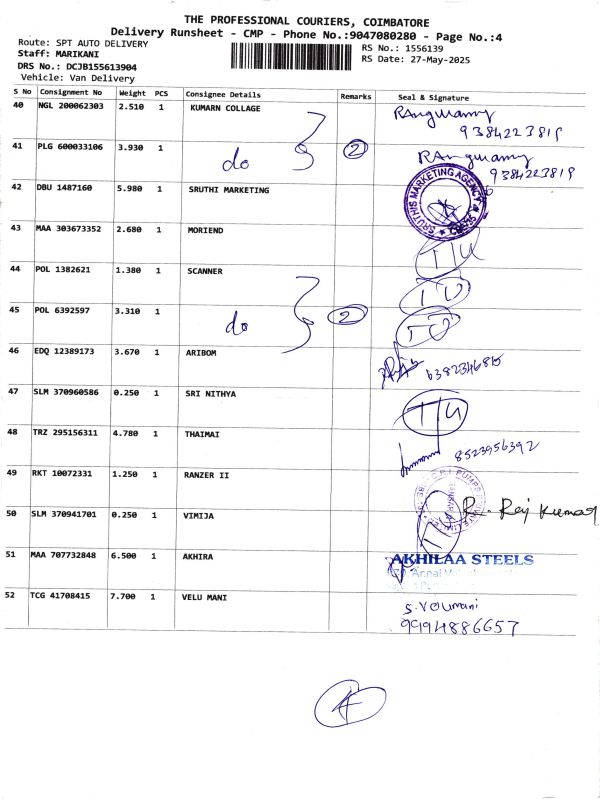 THE PROFESSIONAL COURIERS, COIMBATORE
Delivery Runsheet - CMP - Phone No.:9047080280 - Page No.:4
Route: SPT AUTO DELIVERY
RS No.: 1556139
Staff: MARIKANI
RS Date: 27-May-2025
DRS No.: DCJB155613904
Vehicle: Van Delivery
S No Consignment No Weight PCS Consignee Details Remarks Seal & Signature
40 NGL 200062303 2.510 1 KUMARN COLLAGE RAngwamy
9384223819
41 PLG 600033106 3.930 1 do 2 RAngwamy
9384223819
42 DBU 1487160 5.980 1 SRUTHI MARKETING SRUTHIS MARKETING AGENCY
43 MAA 303673352 2.680 1 MORIEND
44 POL 1382621 1.380 1 SCANNER
45 POL 6392597 3.310 1 do 2
46 EDQ 12389173 3.670 1 ARIBOM 6382346815
47 SLM 370960586 0.250 1 SRI NITHYA
48 TRZ 295156311 4.780 1 THAIMAI 8523956392
49 RKT 10072331 1.250 1 RANZER II R. Raj Kumar
50 SLM 370941701 0.250 1 VIMIJA
51 MAA 707732848 6.500 1 AKHIRA AKHILAA STEELS
52 TCG 41708415 7.700 1 VELU MANI S.Velumani
9994886657